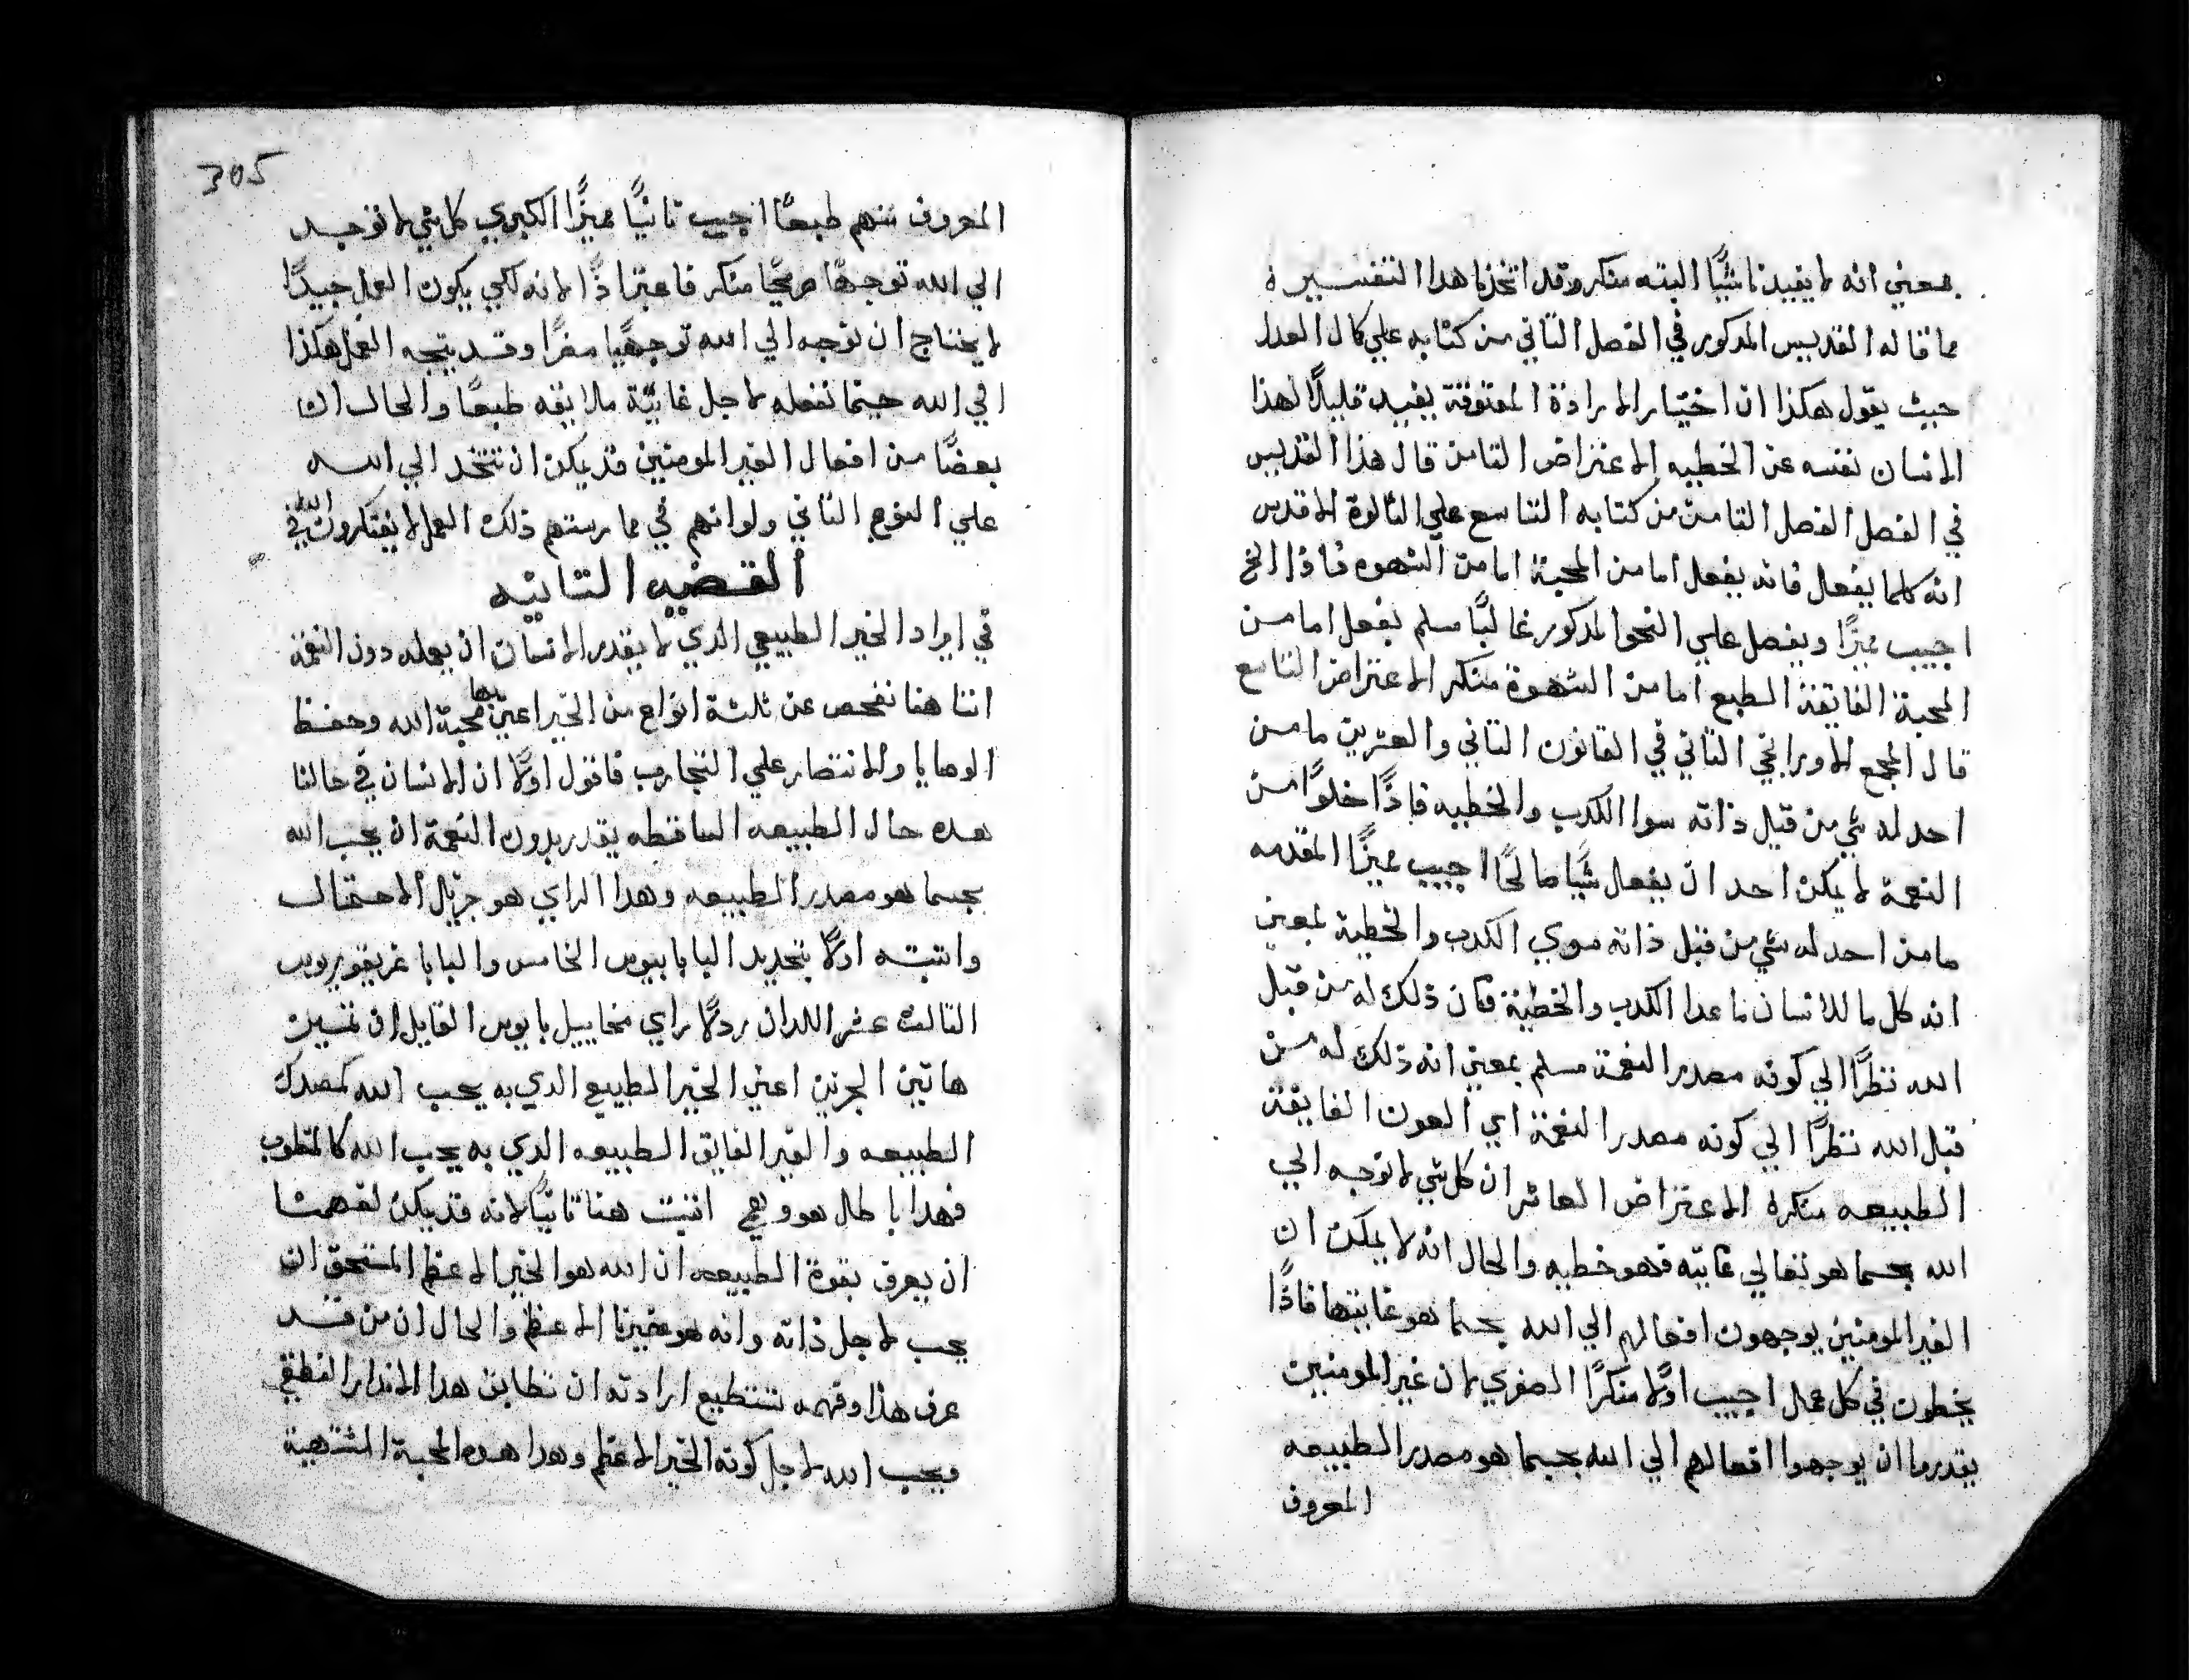 بمعني انه لا يفيدنا شيًّا البته منكر وقد اتخذنا هدا التفسير
مما قاله القديس المدكور في الفصل التاني من كتابه علي كمال العدل
حيث يقول هكذا ان اختيار الارادة المعتوقة يفيد قليلًا لهذا
الانسان نفسه عن الخطيه الاعتراض التامن قال هذا القديس
في الفصل الفصل التامن من كتابه التاسع علي التالوة الاقدس
انه كلما يفعل فانه يفعل اما من المحبة اما من الشهوه فاذا الخ
اجيب مميزًا ويفصل علي النحو المدكور غالبًا مسلم يفعل اما من
المحبة الفايقة الطبع اما من الشهوة منكر الاعتراض التاسع
قال المجمع الاورانجي التاني في القانون التاني والعشرين ما من
احد له شي من قبل ذاته سوا الكدب والخطيه فاذًا خلوًا من
النعمة لا يمكن احد ان يفعل شيًّا صالحًا اجيب مميزًا المقدمه
ما من احد له شي من قبل ذاته سوي الكدب والخطية بمعني
انه كل ما للانسان ما عدا الكدب والخطية فان ذلك له من قبل
الله نظرًا الي كونه مصدر النعمة مسلم بمعني انه ذلك له من
قبل الله نظرًا الي كونه مصدر النعمة اي العون الفايقة
الطبيعه منكره الاعتراض العاشر ان كل شي لا توجه الي
الله بحسما هو تعالي غايته فهو خطيه والحال انه لا يمكن ان
الغير المومنين يوجهون افعالهم الي الله بحسما هو غايتها فاذًا
يخطون في كل عمل اجيب اولًا منكرًا الصغري لان غير المومنين
يقدروا ان يوجهوا افعالهم الي الله بحسما هو مصدر الطبيعه
المعروف
305
المعروف منهم طبعًا اجيب تانيًا مميزًا الكبري كل شي لا توجد
الي الله توجهًا صريحًا منكر فاعتراذًا لانه لكي يكون العمل جيدًا
لا يحتاج ان نوجه الي الله توجهيا مفرًا وقد يتجه العمل هكذا
الي الله حيتما نفعله لاجل غايتة مالايقه طبعًا والحال ان
بعضًا من افعال الغير المومنين قد يمكن ان تتخد الي الله
علي النوع التاني ولو انهم في ممارستهم ذلك العمل لا يفتكرون في الله
القضيه التانيه
في ايراد الخير الطبيعي الدي لا يقدر الانسان ان يعمله دون النعمة
اننا هنا نفحص عن تلتة انواع من الخير اعني بها محبة الله وحفظ
الوصايا والانتصار علي التجارب فاقول اولًا ان الانسان في حالنا
هده حال الطبيعه الساقطه يقدر بدون النعمة ان يحب الله
بحسما هو مصدر الطبيعه وهدا الراي هو جزيل الاحتمال
واتبته اولًا بتحديد البابا بيوس الخامس والبابا غريغوريوس
التالت عشر اللدان ردلا راي مخاييل بايوس القايل ان تمييز
هاتين الجزين اعني الخير الطبيع الدي به يحب الله كمصدر
الطبيعه والخير الفايق الطبيعه الدي به يحب الله كالمطوب
فهدا باطل هو وهمي اتبت هنا تانيًا لانه قد يمكن لفهمنا
ان يعرف بقوة الطبيعه ان الله هو الخير الاعظم المستحق ان
يحب لاجل ذاته وانه هو خيرنا الاعظم والحال ان من قد
عرف هذا وفهمه تستطيع ارادته ان تطابق هدا الاندار النطقي
ويحب الله لاجل كونه الخير الاعظم وهدا هده المحبة المشتهية